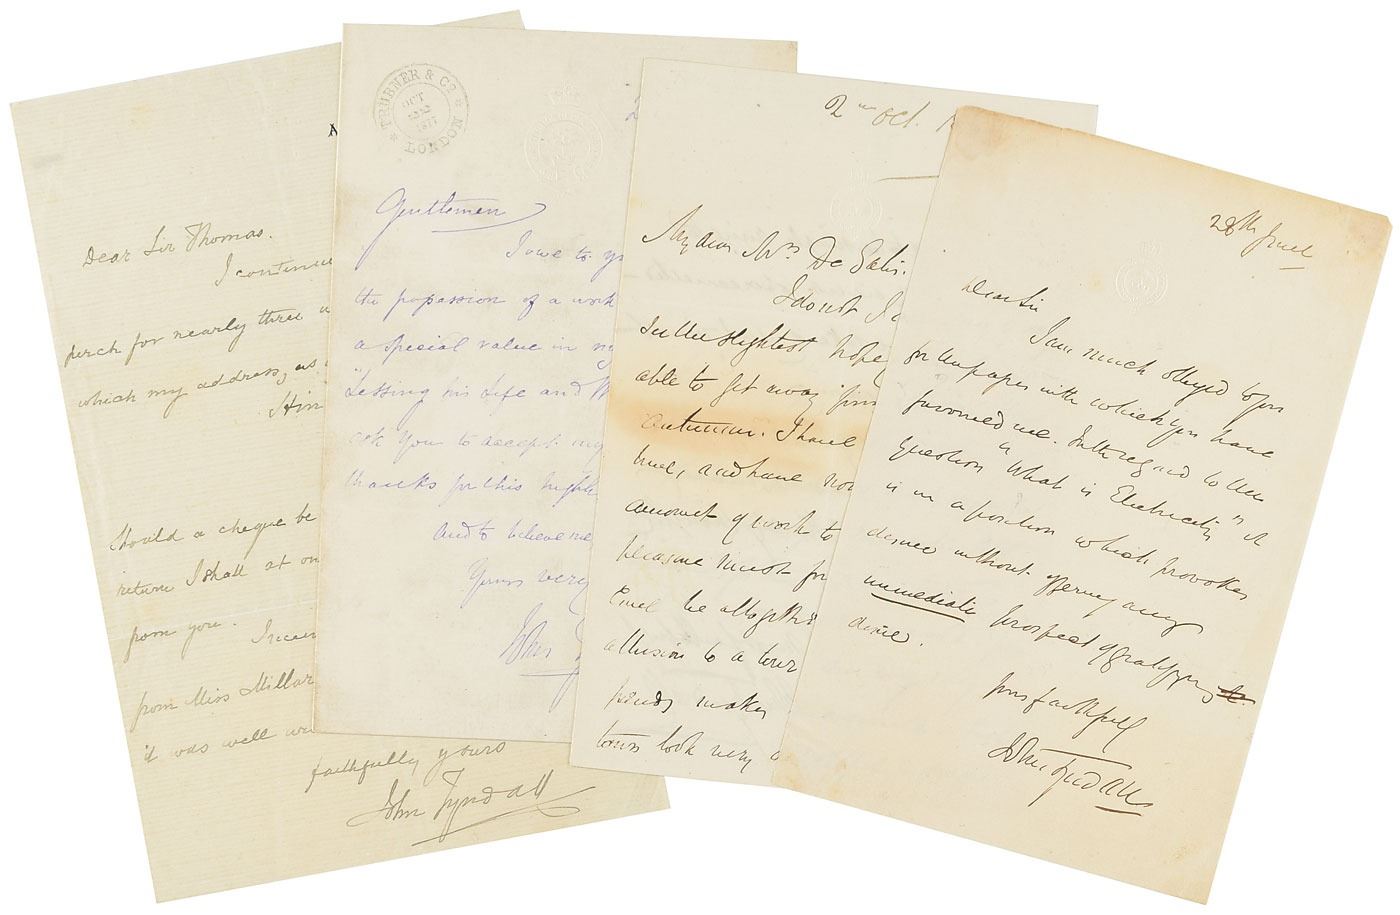 A
Dear Sir Thomas.
I continue
perch for nearly three
which my address, as
Should a cheque be
return I shall at on
from you.
from Miss Millar
it was well
faithfully yours
John Tyndall
TRÜBNER & Co.
OCT
22
1877
LONDON
Gentlemen
I owe to y
the possession of a work
a special value in my
"Lessing his Life and W
ask you to accept my
thanks for this high
and to believe me
Yours very
John
2nd Oct. 1
My dear Mrs De Salis.
I do not
In the slightest hope
able to get away
autumn. I have
and have now
amount of work to
pleasure must for
be altogether
allusion to a tour
friends makes
tours look very
28th June
Dear Sir
I am much obliged to you
for the paper with which you have
favoured me. With regard to the
question "What is Electricity" it
is in a position which provokes
desire without offering any
immediate prospect of gratifying
desire.
Yours faithfully
John Tyndall